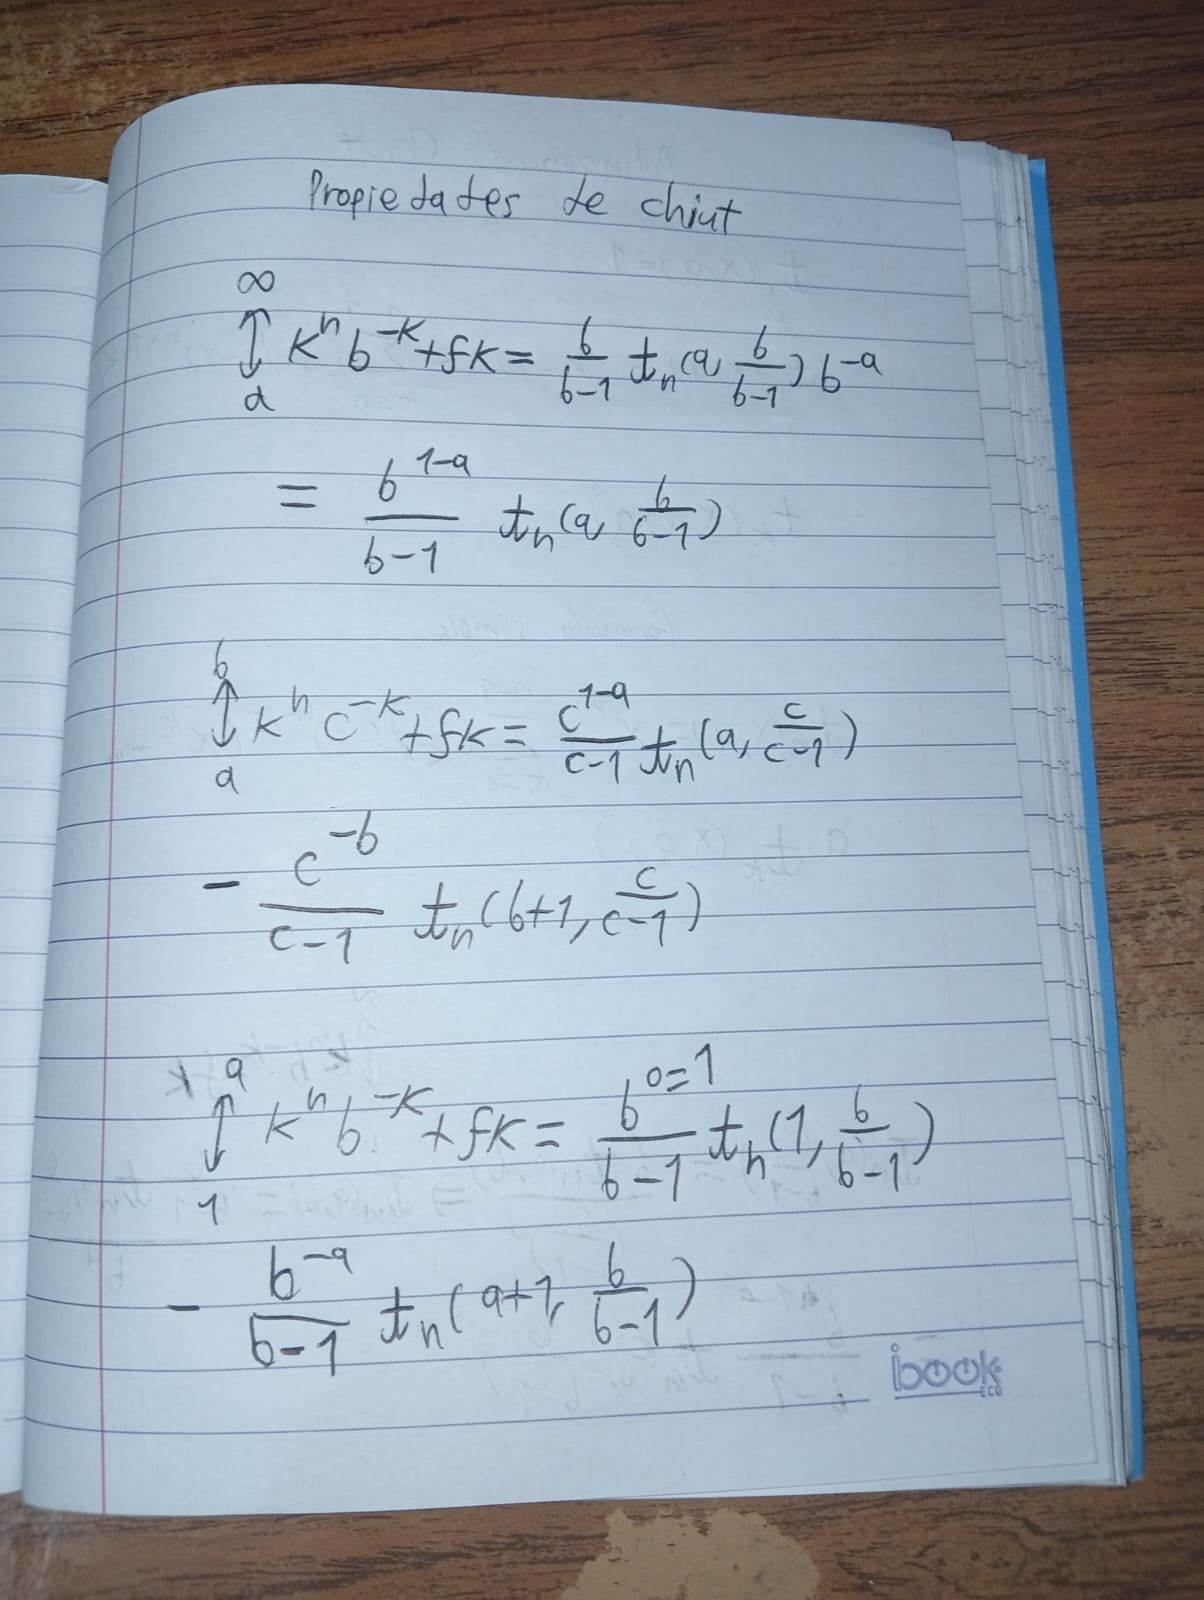 Propiedades de chiut
∞
↕ kⁿ b⁻ᵏ + fk = b/(b-1) tₙ(a, b/(b-1)) b⁻ᵃ
a
= b¹⁻ᵃ/(b-1) tₙ(a, b/(b-1))
b
↕ kⁿ c⁻ᵏ + fk = c¹⁻ᵃ/(c-1) tₙ(a, c/(c-1))
a
- c⁻ᵇ/(c-1) tₙ(b+1, c/(c-1))
a
↕ kⁿ b⁻ᵏ + fk = b⁰⁼¹/(b-1) tₙ(1, b/(b-1))
1
- b⁻ᵃ/(b-1) tₙ(a+1, b/(b-1))
ibook
ECO